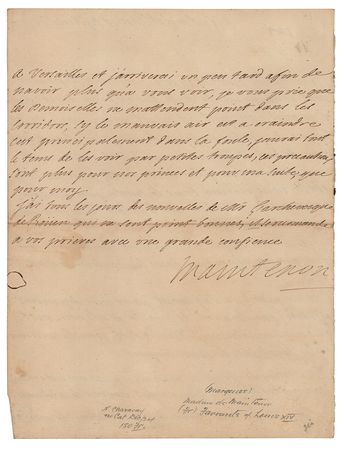 a Versailles et j'arriverai un peu tard afin de
n'avoir plus qu'a vous voir, je vous prie que
les Demoiselles ne m'attendent point dans les
corridors, sy le mauvais air est a craindre
c'est principalement dans la foule, j'aurai tout
le tems de les voir par petites troupes, ces precautions
sont plus pour nos princes et pour ma suite que
pour moy.
j'ai tous les jours des nouvelles de Mr l'archeveque
de Rouen qui ne sont point bonnes, je le recommande
a vos prieres avec une grande confience
Maintenon
Marquise
Madame de Maintenon
Favourite of Louis XIV
N. Charavay